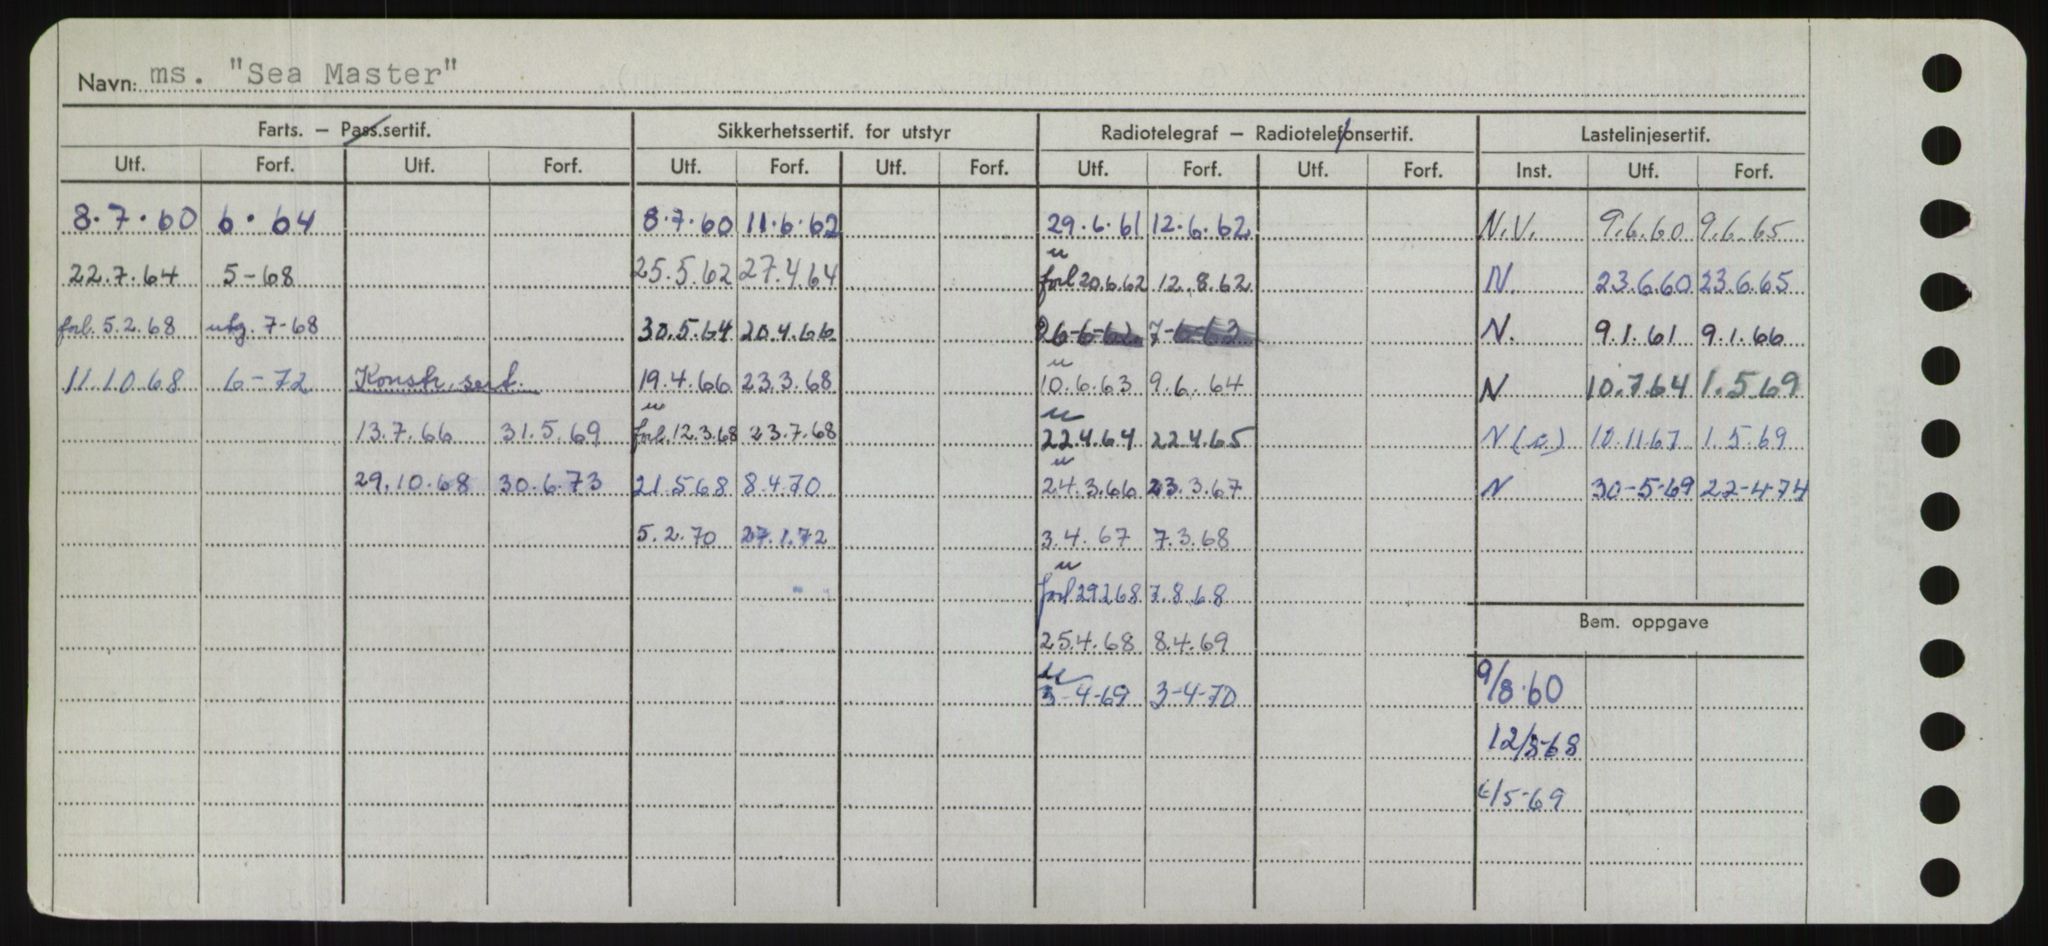 Navn: ms. "Sea Master"
Farts. — Pass.sertif. Sikkerhetssertif. for utstyr Radiotelegraf — Radiotelefonsertif. Lastelinjesertif.
Utf. Forf. Utf. Forf. Utf. Forf. Utf. Forf. Utf. Forf. Utf. Forf. Inst. Utf. Forf.
8.7.60 6.64 8.7.60 11.6.62 29.6.61 12.6.62 N.V. 9.6.60 9.6.65
22.7.64 5-68 25.5.62 27.4.64 forl 20.6.62 12.8.62 N. 23.6.60 23.6.65
forl. 5.2.68 utg. 7-68 30.5.64 20.4.66 26-6-62 7-6-63 N. 9.1.61 9.1.66
11.10.68 6-72 Konstr. sert. 19.4.66 23.3.68 10.6.63 9.6.64 N 10.7.64 1.5.69
13.7.66 31.5.69 forl. 12.3.68 23.7.68 22.4.64 22.4.65 1.5.69
29.10.68 30.6.73 21.5.68 8.4.70 24.3.66 23.3.67 N 30-5-69 22-4-74
5.2.70 27.1.72 3.4.67 7.3.68
forl 29268 7.8.68
Bem. oppgave
25.4.68 8.4.69
3-4-69 3-4-70 9/8.60
12/3-68
/5-69